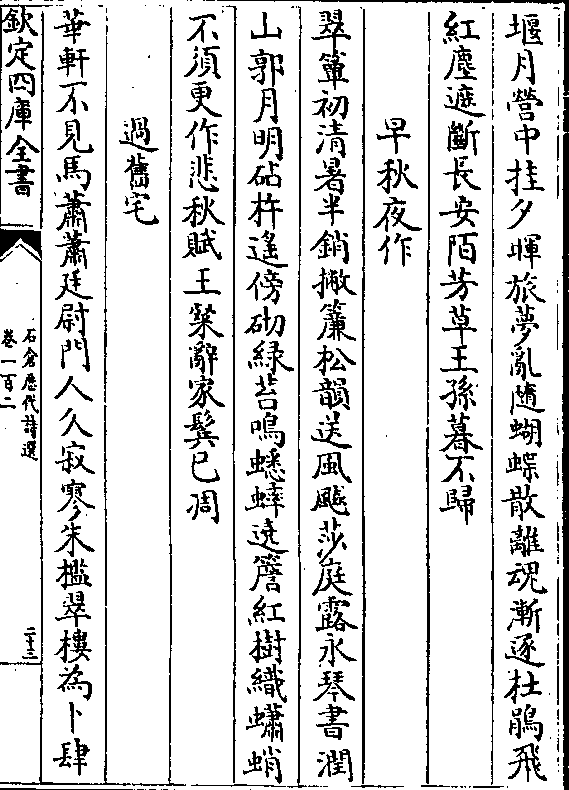 堰月營中挂夕暉旅夢亂隨蝴蝶散離魂漸逐杜鵑飛
紅塵遮斷長安陌芳草王孫暮不歸
早秋夜作
翠簟初清暑半銷撇簾松韻送風飈莎庭露永琴書潤
山郭月明砧杵遙傍砌緑苔鳴蟋蟀遶簷紅樹織蠨蛸
不須更作悲秋賦王粲辭家鬂已凋
過舊宅
華軒不見馬蕭蕭廷尉門人久寂寥朱檻翠樓為卜肆
欽定四庫全書
石倉歷代詩選
卷一百二
二十三